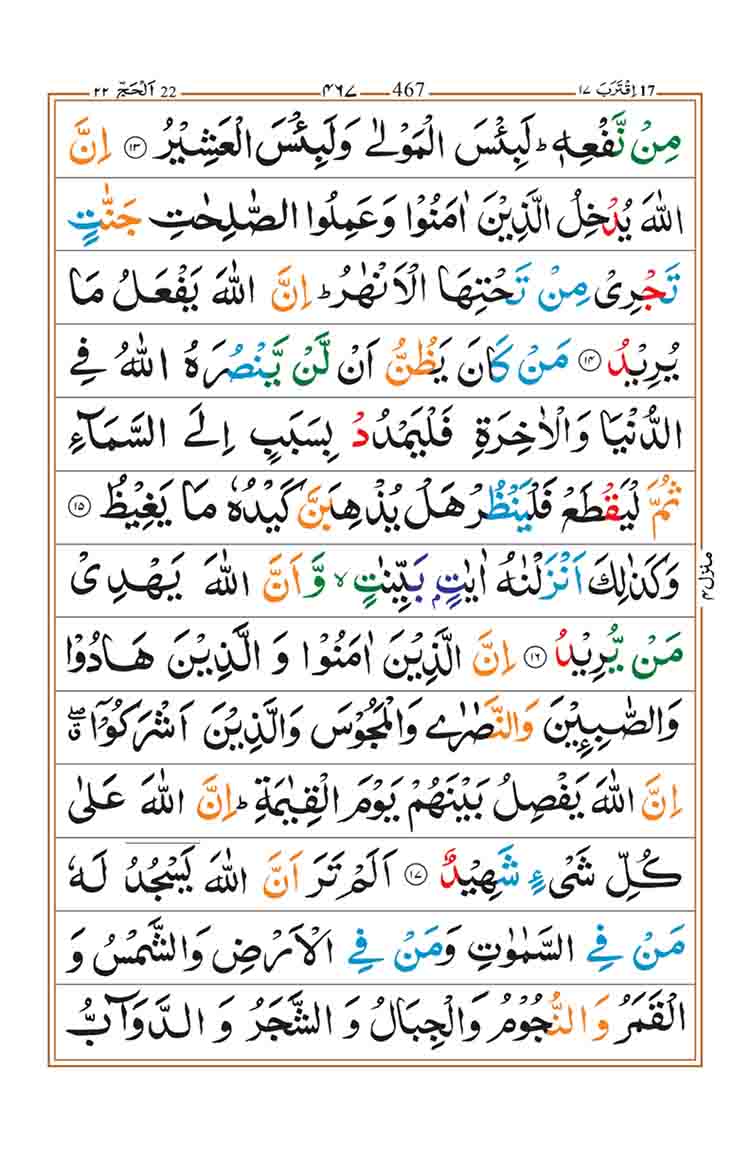 اِقْتَرَبَ ١٧ 17 ـــ 467 ـــ ٤٦٧ ـــ 22 اَلْحَجّ ٢٢
مِنْ نَّفْعِهٖ ؕ لَبِئْسَ الْمَوْلٰى وَلَبِئْسَ الْعَشِيْرُ ۝١٣ اِنَّ
اللّٰهَ يُدْخِلُ الَّذِيْنَ اٰمَنُوْا وَعَمِلُوا الصّٰلِحٰتِ جَنّٰتٍ
تَجْرِىْ مِنْ تَحْتِهَا الْاَنْهٰرُ ؕ اِنَّ اللّٰهَ يَفْعَلُ مَا
يُرِيْدُ ۝١٤ مَنْ كَانَ يَظُنُّ اَنْ لَّنْ يَّنْصُرَهُ اللّٰهُ فِى
الدُّنْيَا وَالْاٰخِرَةِ فَلْيَمْدُدْ بِسَبَبٍ اِلَى السَّمَآءِ
ثُمَّ لْيَقْطَعْ فَلْيَنْظُرْ هَلْ يُذْهِبَنَّ كَيْدُهٗ مَا يَغِيْظُ ۝١٥
وَكَذٰلِكَ اَنْزَلْنٰهُ اٰيٰتٍۭ بَيِّنٰتٍ ۙ وَّاَنَّ اللّٰهَ يَهْدِىْ
مَنْ يُّرِيْدُ ۝١٦ اِنَّ الَّذِيْنَ اٰمَنُوْا وَ الَّذِيْنَ هَادُوْا
وَالصّٰبِـِٕيْنَ وَالنَّصٰرٰى وَالْمَجُوْسَ وَالَّذِيْنَ اَشْرَكُوْۤا ۖۗ
اِنَّ اللّٰهَ يَفْصِلُ بَيْنَهُمْ يَوْمَ الْقِيٰمَةِ ؕ اِنَّ اللّٰهَ عَلٰى
كُلِّ شَىْءٍ شَهِيْدٌ ۝١٧ اَلَمْ تَرَ اَنَّ اللّٰهَ يَسْجُدُ لَهٗ
مَنْ فِى السَّمٰوٰتِ وَمَنْ فِى الْاَرْضِ وَالشَّمْسُ وَ
الْقَمَرُ وَالنُّجُوْمُ وَالْجِبَالُ وَ الشَّجَرُ وَ الدَّوَآبُّ
منزل ٤